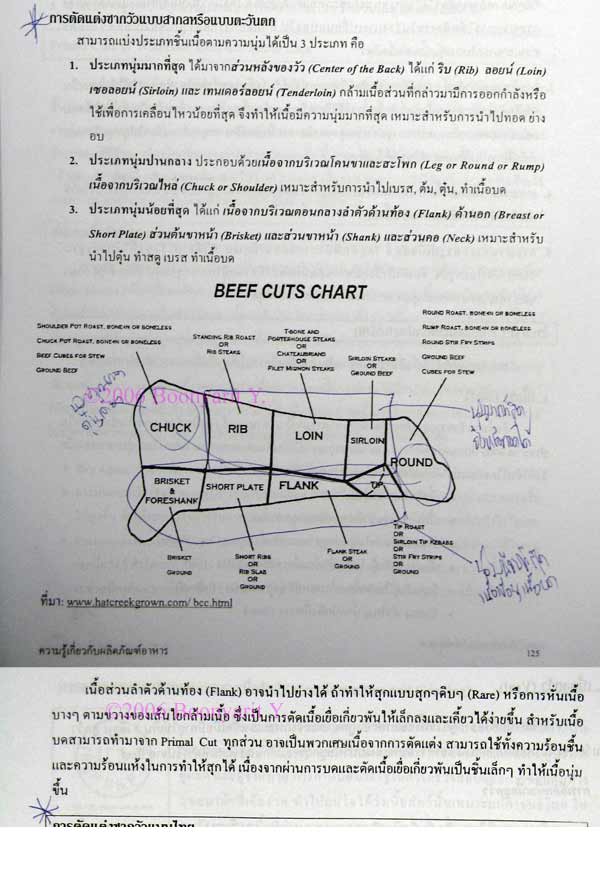 การตัดแต่งซากวัวแบบสากลหรือแบบตะวันตก
สามารถแบ่งประเภทชิ้นเนื้อตามความนุ่มได้เป็น 3 ประเภท คือ
1. ประเภทนุ่มมากที่สุด ได้มาจากส่วนหลังของวัว (Center of the Back) ได้แก่ ริบ (Rib) ลอยน์ (Loin)
เซอลอยน์ (Sirloin) และ เทนเดอร์ลอยน์ (Tenderloin) กล้ามเนื้อส่วนที่กล่าวมามีการออกกำลังหรือ
ใช้เพื่อการเคลื่อนไหวน้อยที่สุด จึงทำให้เนื้อมีความนุ่มมากที่สุด เหมาะสำหรับการนำไปทอด ย่าง
อบ
2. ประเภทนุ่มปานกลาง ประกอบด้วยเนื้อจากบริเวณโคนขาและสะโพก (Leg or Round or Rump)
เนื้อจากบริเวณไหล่ (Chuck or Shoulder) เหมาะสำหรับการนำไปเบรส, ต้ม, ตุ๋น, ทำเนื้อบด
3. ประเภทนุ่มน้อยที่สุด ได้แก่ เนื้อจากบริเวณตอนกลางลำตัวด้านท้อง (Flank) ด้านอก (Breast or
Short Plate) ส่วนต้นขาหน้า (Brisket) และส่วนขาหน้า (Shank) และส่วนคอ (Neck) เหมาะสำหรับ
นำไปตุ๋น ทำสตู เบรส ทำเนื้อบด
BEEF CUTS CHART
SHOULDER POT ROAST, BONE-IN OR BONELESS
CHUCK POT ROAST, BONE-IN OR BONELESS
BEEF CUBES FOR STEW
GROUND BEEF
STANDING RIB ROAST
OR
RIB STEAKS
T-BONE AND
PORTERHOUSE STEAKS
OR
CHATEAUBRIAND
OR
FILET MIGNON STEAKS
SIRLOIN STEAKS
OR
GROUND BEEF
ROUND ROAST, BONE-IN OR BONELESS
RUMP ROAST, BONE-IN OR BONELESS
ROUND STIR FRY STRIPS
GROUND BEEF
CUBES FOR STEW
©2006 Boonyarit Y.
CHUCK
RIB
LOIN
SIRLOIN
ROUND
BRISKET
&
FORESHANK
SHORT PLATE
FLANK
TIP
BRISKET
OR
GROUND
SHORT RIBS
OR
RIB SLAB
OR
GROUND
FLANK STEAK
OR
GROUND
TIP ROAST
OR
SIRLOIN TIP KEBABS
OR
STIR FRY STRIPS
OR
GROUND
ที่มา: www.hatcreekgrown.com/ bcc.html
ความรู้เกี่ยวกับผลิตภัณฑ์อาหาร
125
เนื้อส่วนลำตัวด้านท้อง (Flank) อาจนำไปย่างได้ ถ้าทำให้สุกแบบสุกๆดิบๆ (Rare) หรือการหั่นเนื้อ
บางๆ ตามขวางของเส้นใยกล้ามเนื้อ ซึ่งเป็นการตัดเนื้อเยื่อเกี่ยวพันให้เล็กลงและเคี้ยวได้ง่ายขึ้น สำหรับเนื้อ
©2006 Boonyarit Y.
บดสามารถทำมาจาก Primal Cut ทุกส่วน อาจเป็นพวกเศษเนื้อจากการตัดแต่ง สามารถใช้ทั้งความร้อนชื้น
และความร้อนแห้งในการทำให้สุกได้ เนื่องจากผ่านการบดและตัดเนื้อเยื่อเกี่ยวพันเป็นชิ้นเล็กๆ ทำให้เนื้อนุ่ม
ขึ้น
การตัดแต่งซากวัวแบบไทย